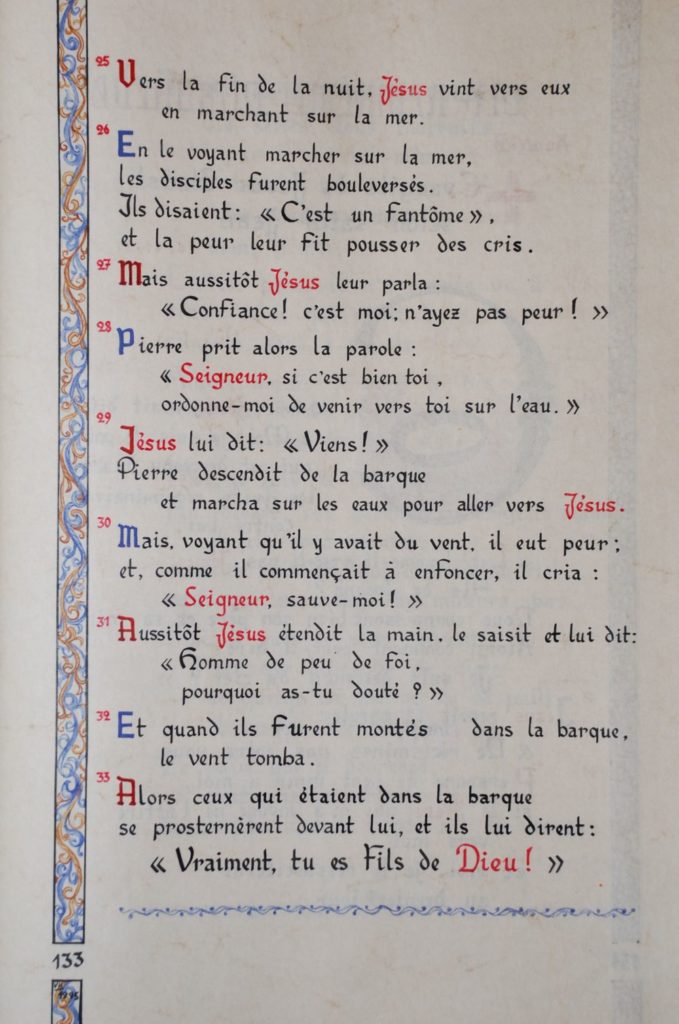 25 Vers la fin de la nuit, Jésus vint vers eux
en marchant sur la mer.
26 En le voyant marcher sur la mer,
les disciples furent bouleversés.
Ils disaient : « C'est un fantôme »,
et la peur leur fit pousser des cris.
27 Mais aussitôt Jésus leur parla :
« Confiance ! c'est moi ; n'ayez pas peur ! »
28 Pierre prit alors la parole :
« Seigneur, si c'est bien toi,
ordonne-moi de venir vers toi sur l'eau. »
29 Jésus lui dit : « Viens ! »
Pierre descendit de la barque
et marcha sur les eaux pour aller vers Jésus.
30 Mais, voyant qu'il y avait du vent, il eut peur ;
et, comme il commençait à enfoncer, il cria :
« Seigneur, sauve-moi ! »
31 Aussitôt Jésus étendit la main, le saisit et lui dit :
« Homme de peu de foi,
pourquoi as-tu douté ? »
32 Et quand ils furent montés dans la barque,
le vent tomba.
33 Alors ceux qui étaient dans la barque
se prosternèrent devant lui, et ils lui dirent :
« Vraiment, tu es Fils de Dieu ! »
133